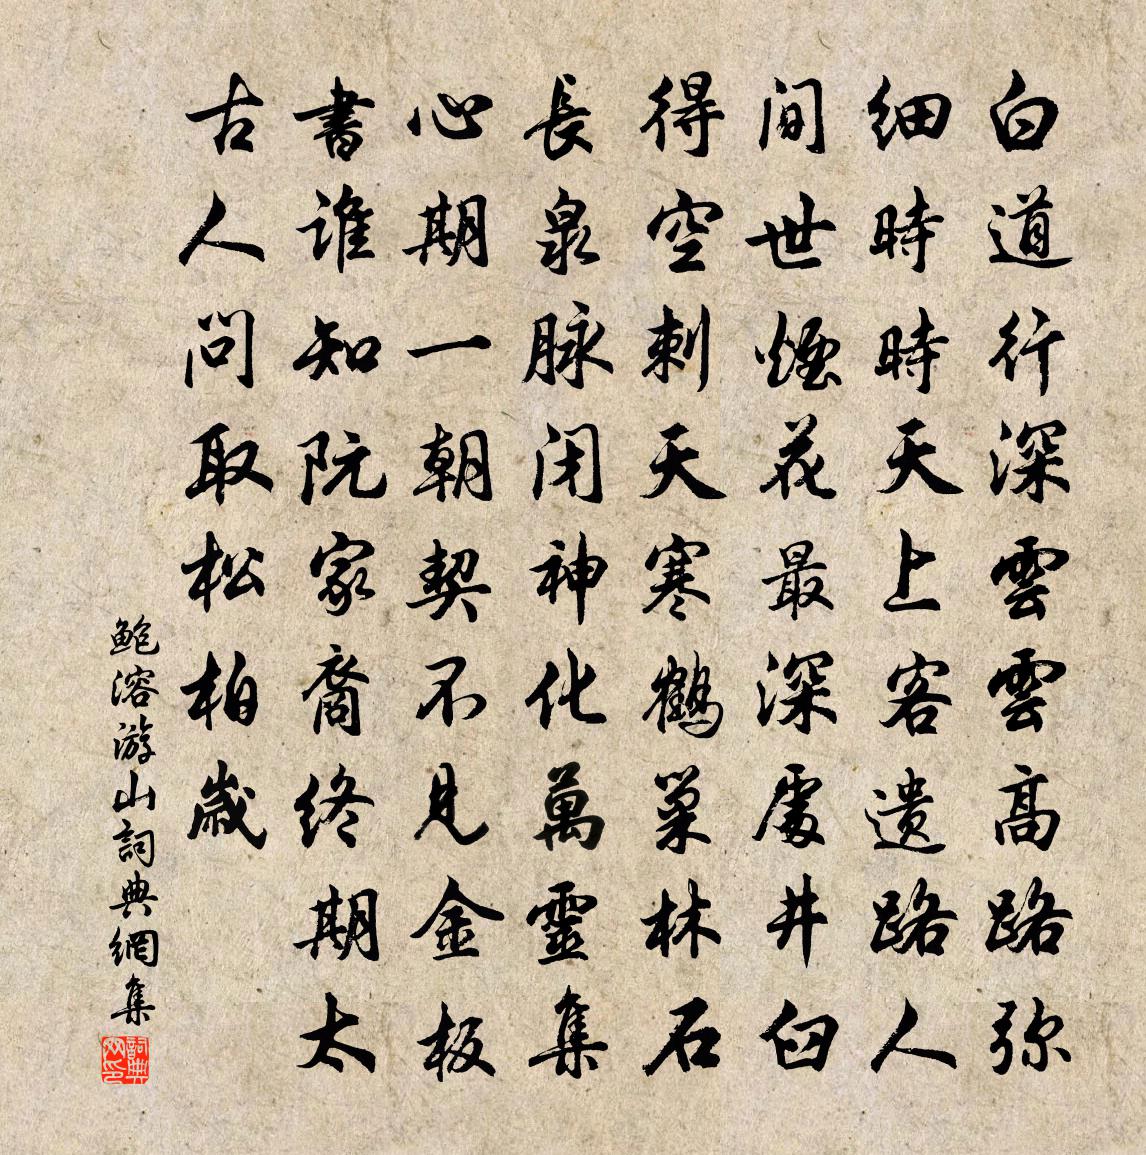 白道行深雲雲高路弥
細時時天上客遺路人
间世煙花最深處井臼
得空刺天寒鶴巢林石
長泉脉闭神化萬靈集
心期一朝契不見金板
書誰知阮家裔終期太
古人问取松柏歲
鲍溶游山詞典網集
詞典网印